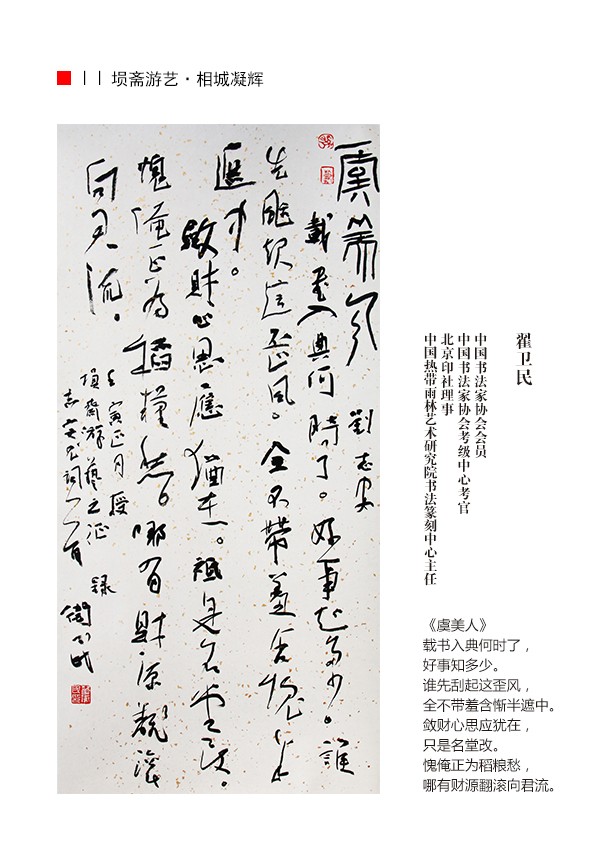 丨丨 埙斋游艺·相城凝辉
虞美人
載書入典何時了。好事知多少。誰
先颳起這歪風。全不帶羞含慚半
遮中。
斂財心思應猶在。祗是名堂改。
愧俺正為稻糧愁。哪有財源翻滾
向君流。
壬寅正月
衛民
翟卫民
中国书法家协会会员
中国书法家协会考级中心考官
北京印社理事
中国热带雨林艺术研究院书法篆刻中心主任
《虞美人》
载书入典何时了，
好事知多少。
谁先刮起这歪风，
全不带羞含惭半遮中。
敛财心思应犹在，
只是名堂改。
愧俺正为稻粮愁，
哪有财源翻滚向君流。